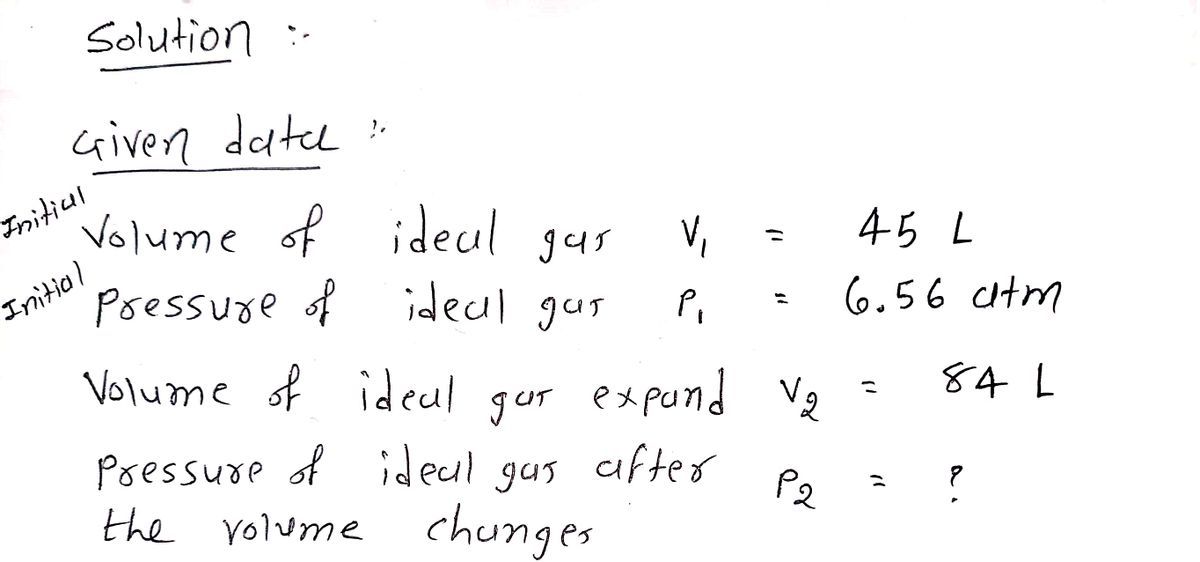 Solution :-
Given data :-
Initial Volume of ideal gas V₁ = 45 L
Initial Pressure of ideal gas P₁ = 6.56 atm
Volume of ideal gas expand V₂ = 84 L
Pressure of ideal gas after P₂ = ?
the volume changes